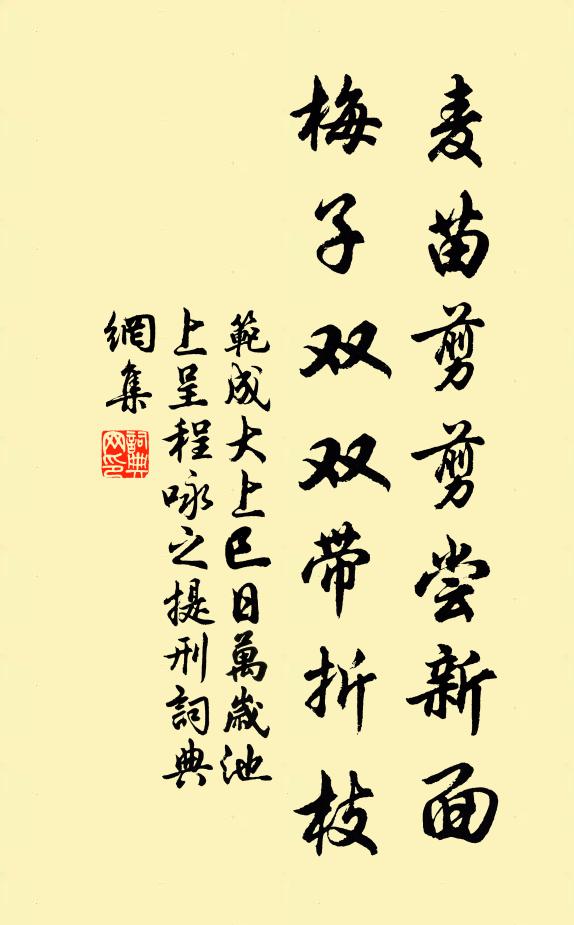 麦苗剪剪尝新面
梅子双双带折枝
範成大上巳日萬歲池
上呈程咏之提刑詞典
網集
詞典
网印